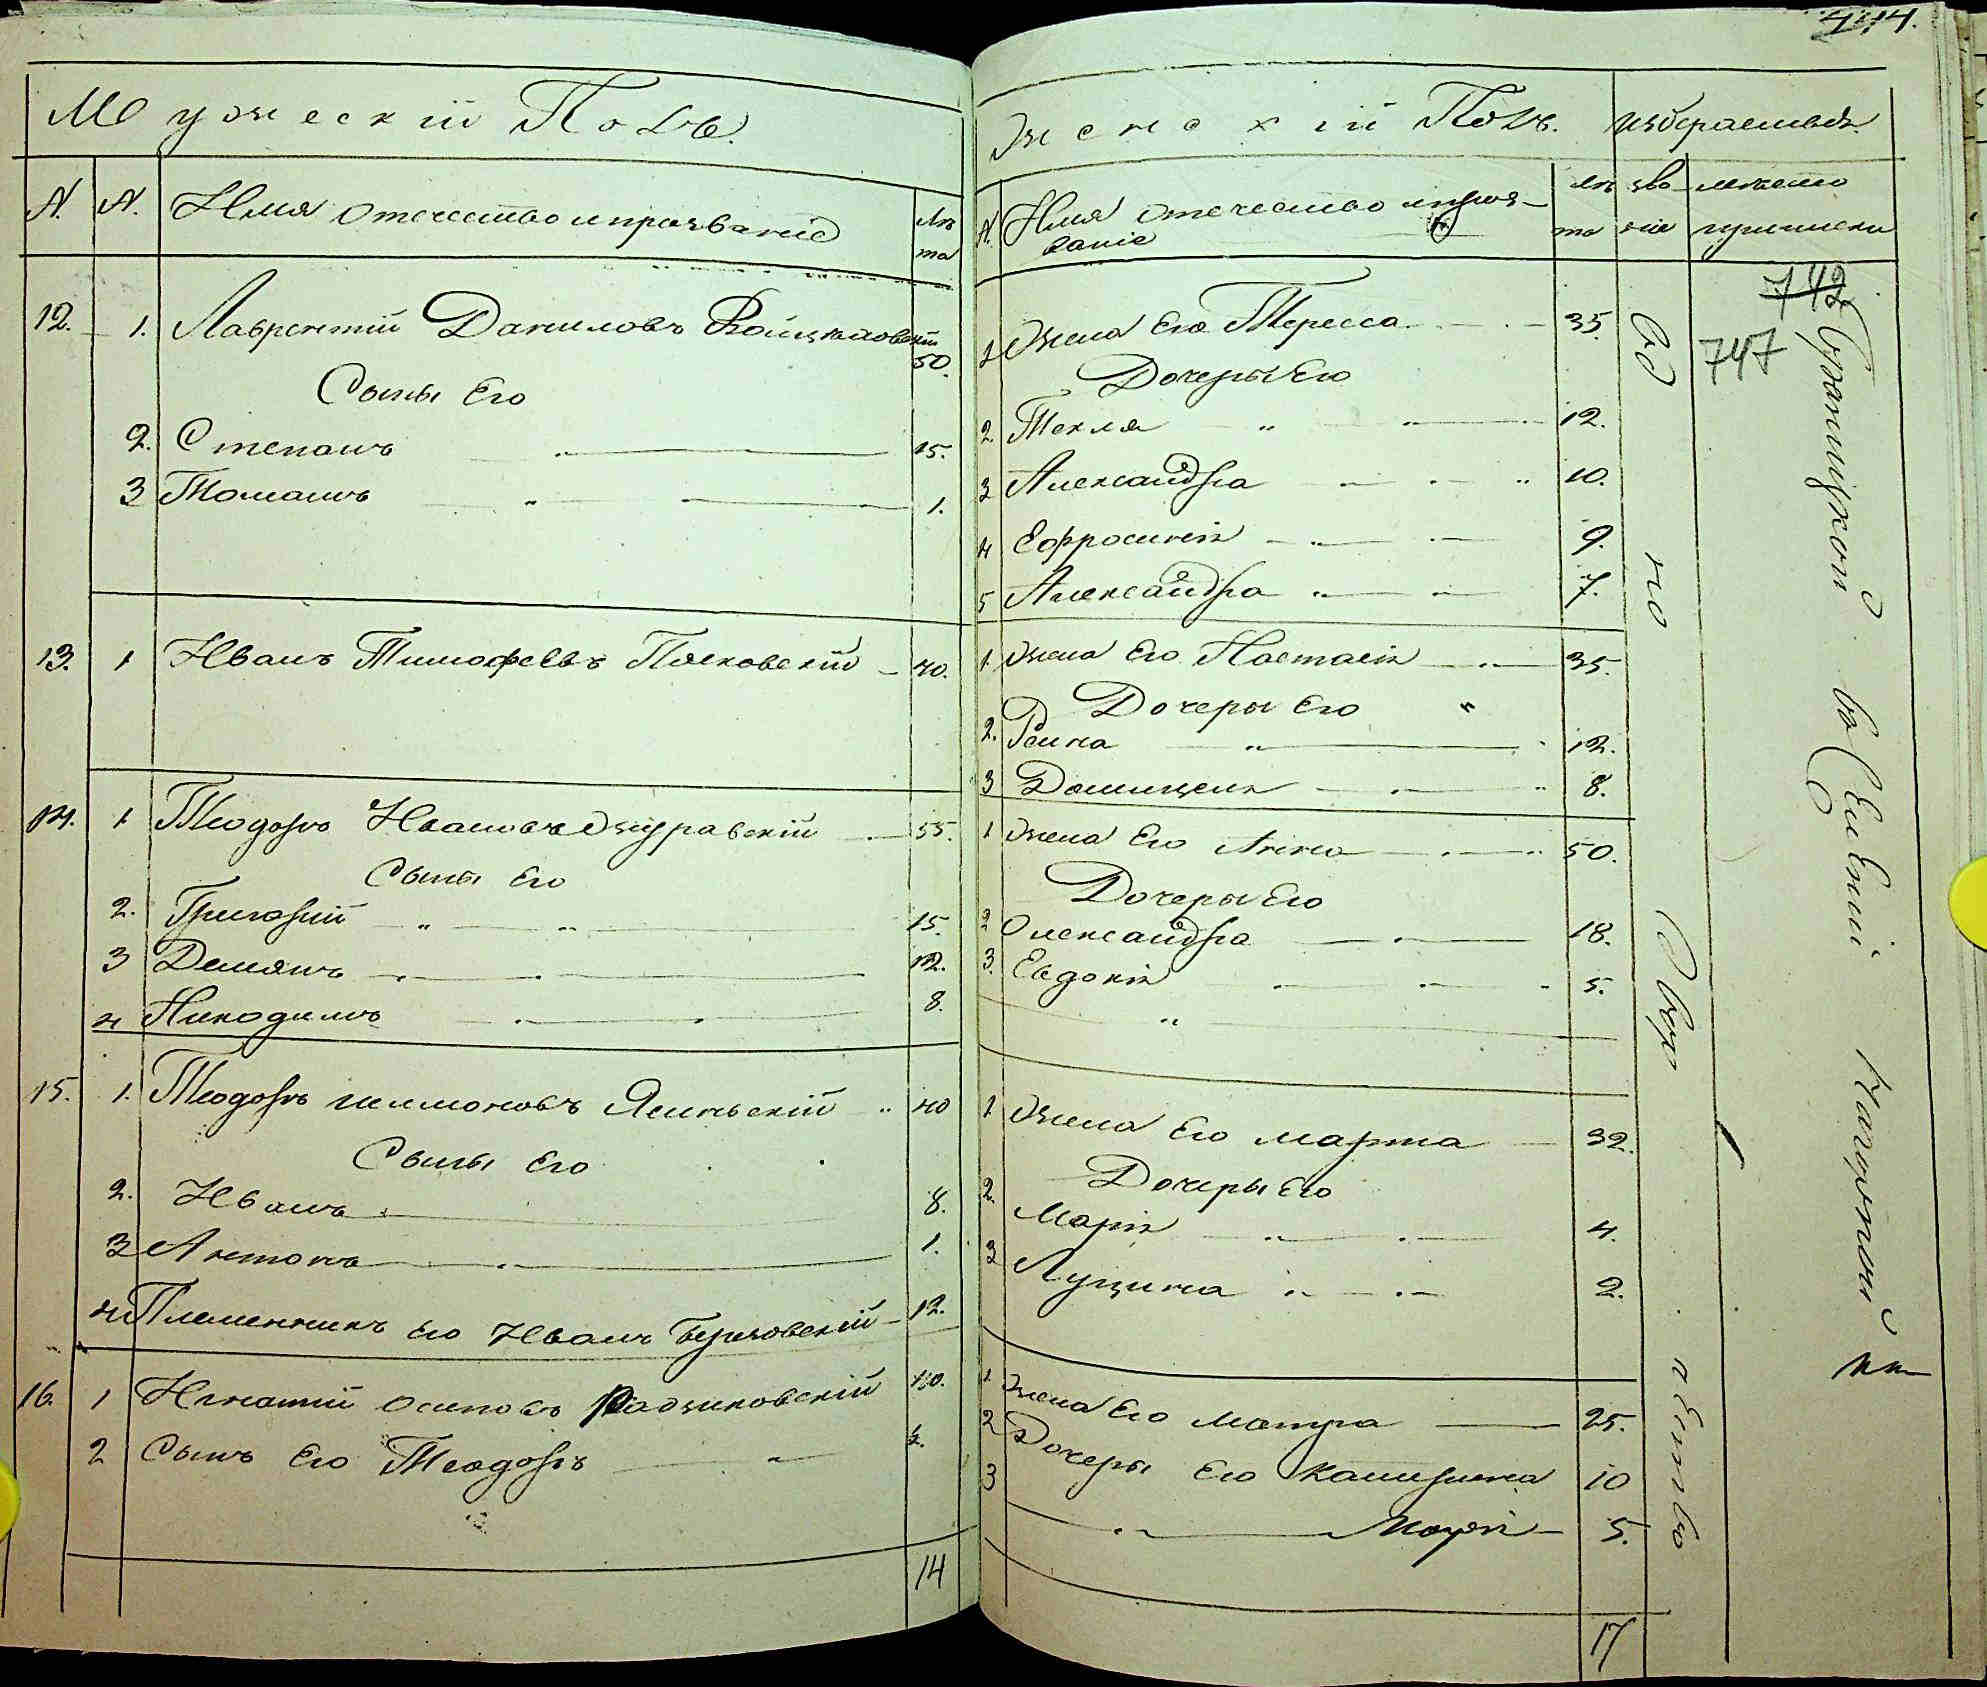 Мужескій Полъ.
N. N. Имя отечество и прозваніе Лѣта
12. 1. Лаврентій Даниловъ 50.
Сыны Его
2. Степанъ 15.
3 Томашъ 1.
13. 1 Иванъ Тимофеевъ Пясковскій 40.
14. 1 Теодоръ Ивановъ Журавскій 55.
Сыны Его
2. Григорій 15.
3 Демянъ 12.
4 Никодимъ 8.
15. 1. Теодоръ Ясинскій 40
Сыны Его
2. Иванъ 8.
3 Антонъ 1.
4 Племенникъ Его Иванъ Березовскій 12.
16. 1 Игнатій Осиповъ Радзиковскій 40.
2 Сынъ Его Теодоръ
14
744.
Женскій Полъ. избираемыя
N. Имя отечество и проз- лѣ зва- мѣсто
ваніе та ніе приписки
742
747
1 Жена Его Тересса 35.
Дочеры Его
2. Текля 12.
3 Александра 10.
4 Ефросинія 9.
5 Александра 7.
1. Жена Его Настасія 35.
Дочеры Его
2. 12.
3 Домицеля 8.
1 Жена Его Анна 50.
Дочеры Его
2 Олександра 18.
3. Евдокія 5.
1. Жена Его Марта 32.
Дочеры Его
2. Марія 4.
3 Луцина 2.
1. Жена Его Матра 25.
2 Дочеры Его 10
3 Марія 5.
17
Одно